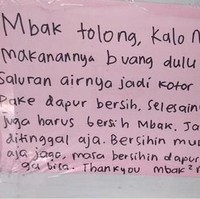 Mbak tolong, Kalo
Makanannya buang dulu
Saluran airnya jadi kotor
Pake dapur bersih, selesain
juga harus bersih Mbak. Ja
ditinggal aja. Bersihin mu
aja jago, masa bersihin dapur
ga bisa. Thankyou mbak²